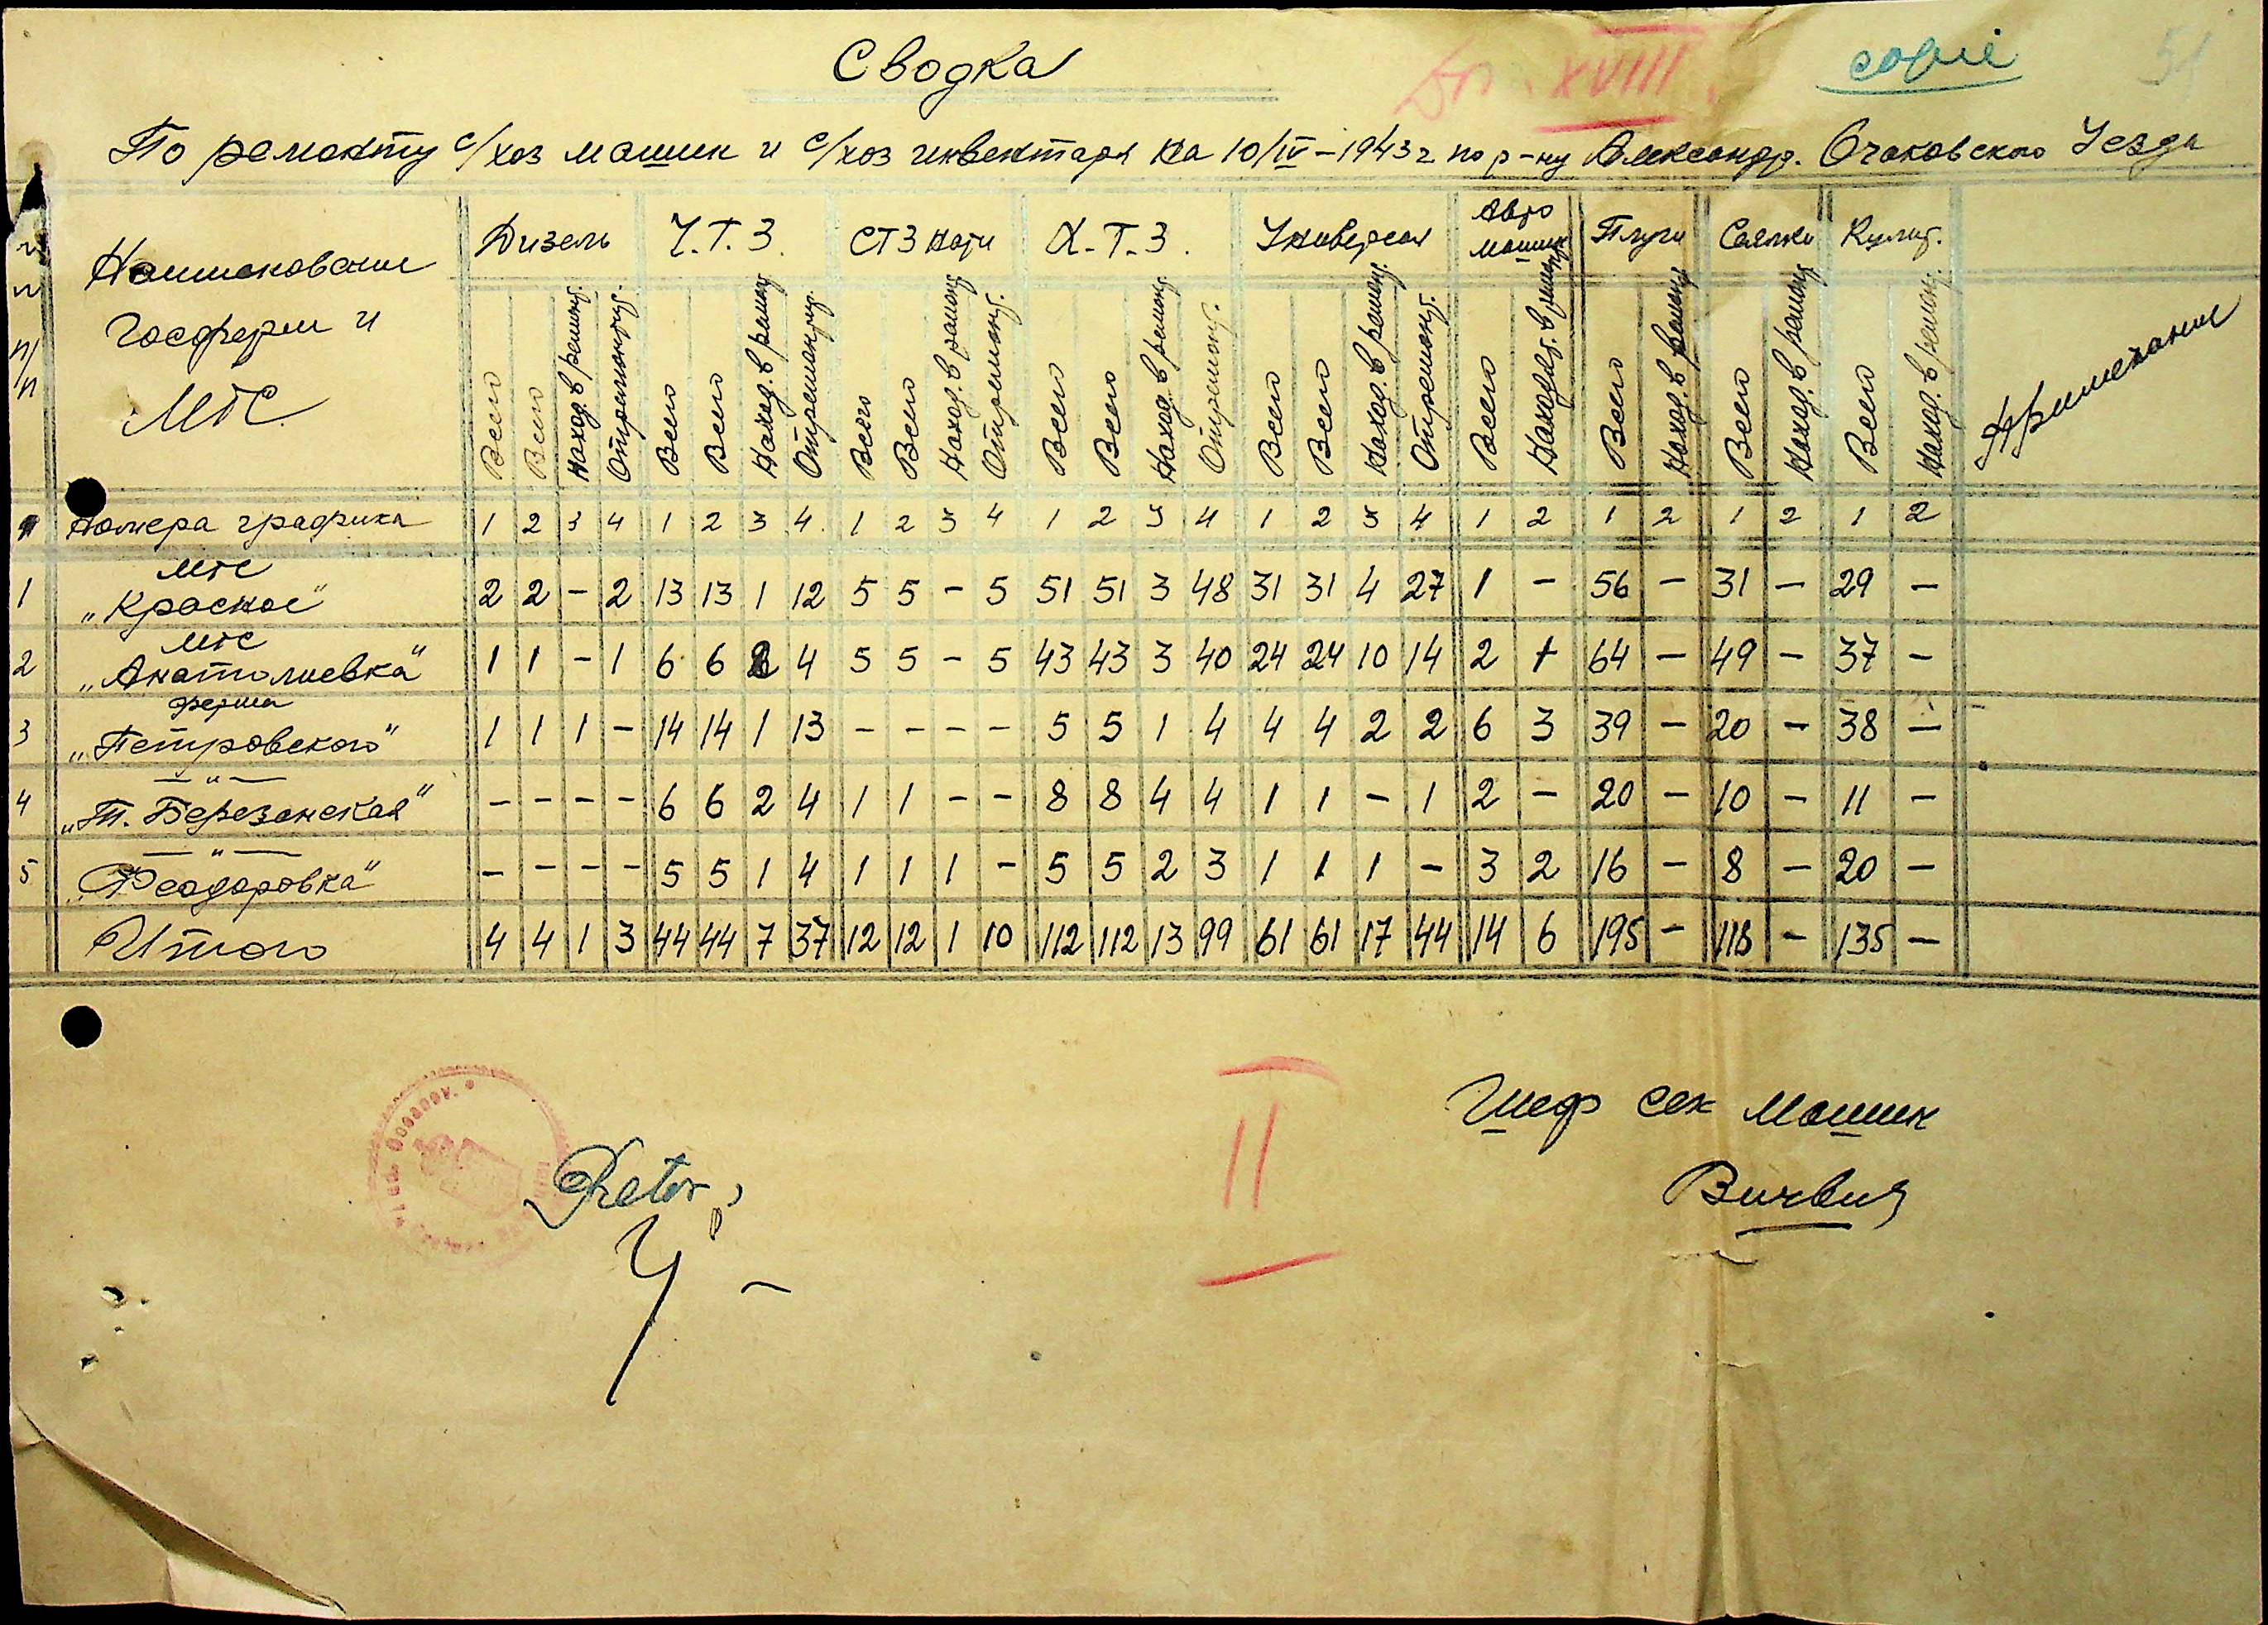 Сводка
copie
51
XVIII
По ремонту с/хоз машин и с/хоз инвентаря на 10/IV-1943 г по р-ну Александр. Очаковского Уезда
№ № п/п Наименование Госферм и МТС Дизель Ч.Т.З. СТЗ Нати Х.Т.З. Универсал Авто машин Плуги Сеялки Культ. Примечание
Всего Всего Наход. в ремонт. Отремонтир. Всего Всего Наход. в ремонт Отремонтир. Всего Всего Наход. в ремонт Отремонт. Всего Всего Наход. в ремонт. Отремонт. Всего Всего Наход. в ремонт. Отремонт. Всего Находят. в ремонт Всего Наход. в ремонт Всего Наход. в ремонт Всего Наход. в ремонт.
Номера графика 1 2 3 4 1 2 3 4 1 2 3 4 1 2 3 4 1 2 3 4 1 2 1 2 1 2 1 2
1 МТС „Красное" 2 2 - 2 13 13 1 12 5 5 - 5 51 51 3 48 31 31 4 27 1 - 56 - 31 - 29 -
2 МТС „Анатолиевка" 1 1 - 1 6 6 2 4 5 5 - 5 43 43 3 40 24 24 10 14 2 1 64 - 49 - 37 -
3 ферма „Петровского" 1 1 1 - 14 14 1 13 - - - - 5 5 1 4 4 4 2 2 6 3 39 - 20 - 38 -
4 — " — „Т. Березанская" - - - - 6 6 2 4 1 1 - - 8 8 4 4 1 1 - 1 2 - 20 - 10 - 11 -
5 — " — „Феодоровка" - - - - 5 5 1 4 1 1 1 - 5 5 2 3 1 1 1 - 3 2 16 - 8 - 20 -
Итого 4 4 1 3 44 44 7 37 12 12 1 10 112 112 13 99 61 61 17 44 14 6 195 - 118 - 135 -
Шеф сек машин
Pretor,
II